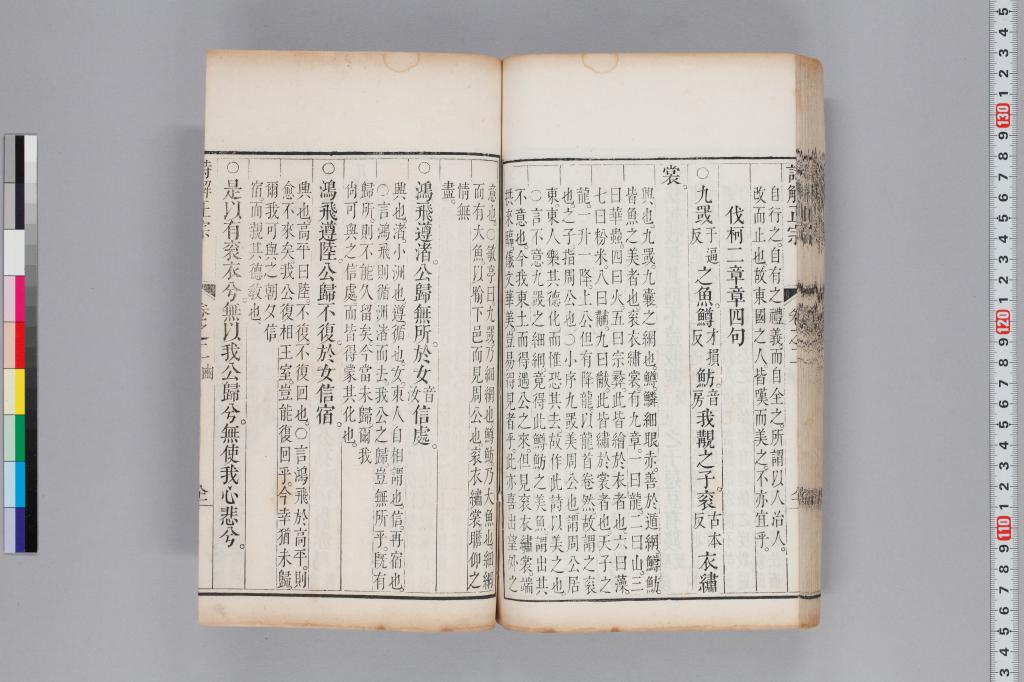 自行之。自有之禮義而自全之。所謂以人治人。
改而止也故東國之人皆嘆而美之。不亦宜乎。
伐柯二章章四句
○九罭于逼反之魚鱒才損反魴音房我覯之子袞古本反衣繡
裳。
興也。九罭九囊之網也。鱒鱗細眼赤。善於遁網。鱒魴
皆魚之美者也。袞衣繡裳有九章。一曰龍。二曰山。三
曰華蟲。四曰火。五曰宗彝。此皆繪於衣者也。六曰藻。
七曰粉米。八曰黼。九曰黻。此皆繡於裳者也。天子之
龍。一升一降。上公但有降龍。以龍首卷然。故謂之袞
也。之子指周公也。○小序九罭美周公也。謂周公居
東。東人樂其德化。而惟恐其去。故作此詩以美之也。
○言不意九罭之細網。竟得此鱒魴之美魚。謂出其
不意也。今我東土而得遇公之來。但見袞衣繡裳端
拱來臨。儀文華美。豈易得見者乎。此亦喜出望外之
意也。○徽亭曰。九罭乃細網也。鱒魴乃大魚也。細網
而有大魚。以喻下邑而見周公也。袞衣繡裳。瞻仰之
情無
盡。
○鴻飛遵渚。公歸無所。於女音汝信處。
興也。渚小洲也。遵循也。女東人自相謂也。信。再宿也。
○言鴻飛則循洲渚而去。我公之歸豈無所乎。既有
歸所。則不能久留矣。今當未歸。爾我
尚可與之信處而皆得蒙其化也。
○鴻飛遵陸。公歸不復。於女信宿。
興也。高平曰陸。不復不復回也。○言鴻飛於高平。則
愈不來矣。我公復相王室。豈能復回乎。今幸猶未歸。
爾我可與之朝夕信
宿而親其德教也。
○是以有袞衣兮。無以我公歸兮。無使我心悲兮。
詩解正宗 卷之二 豳